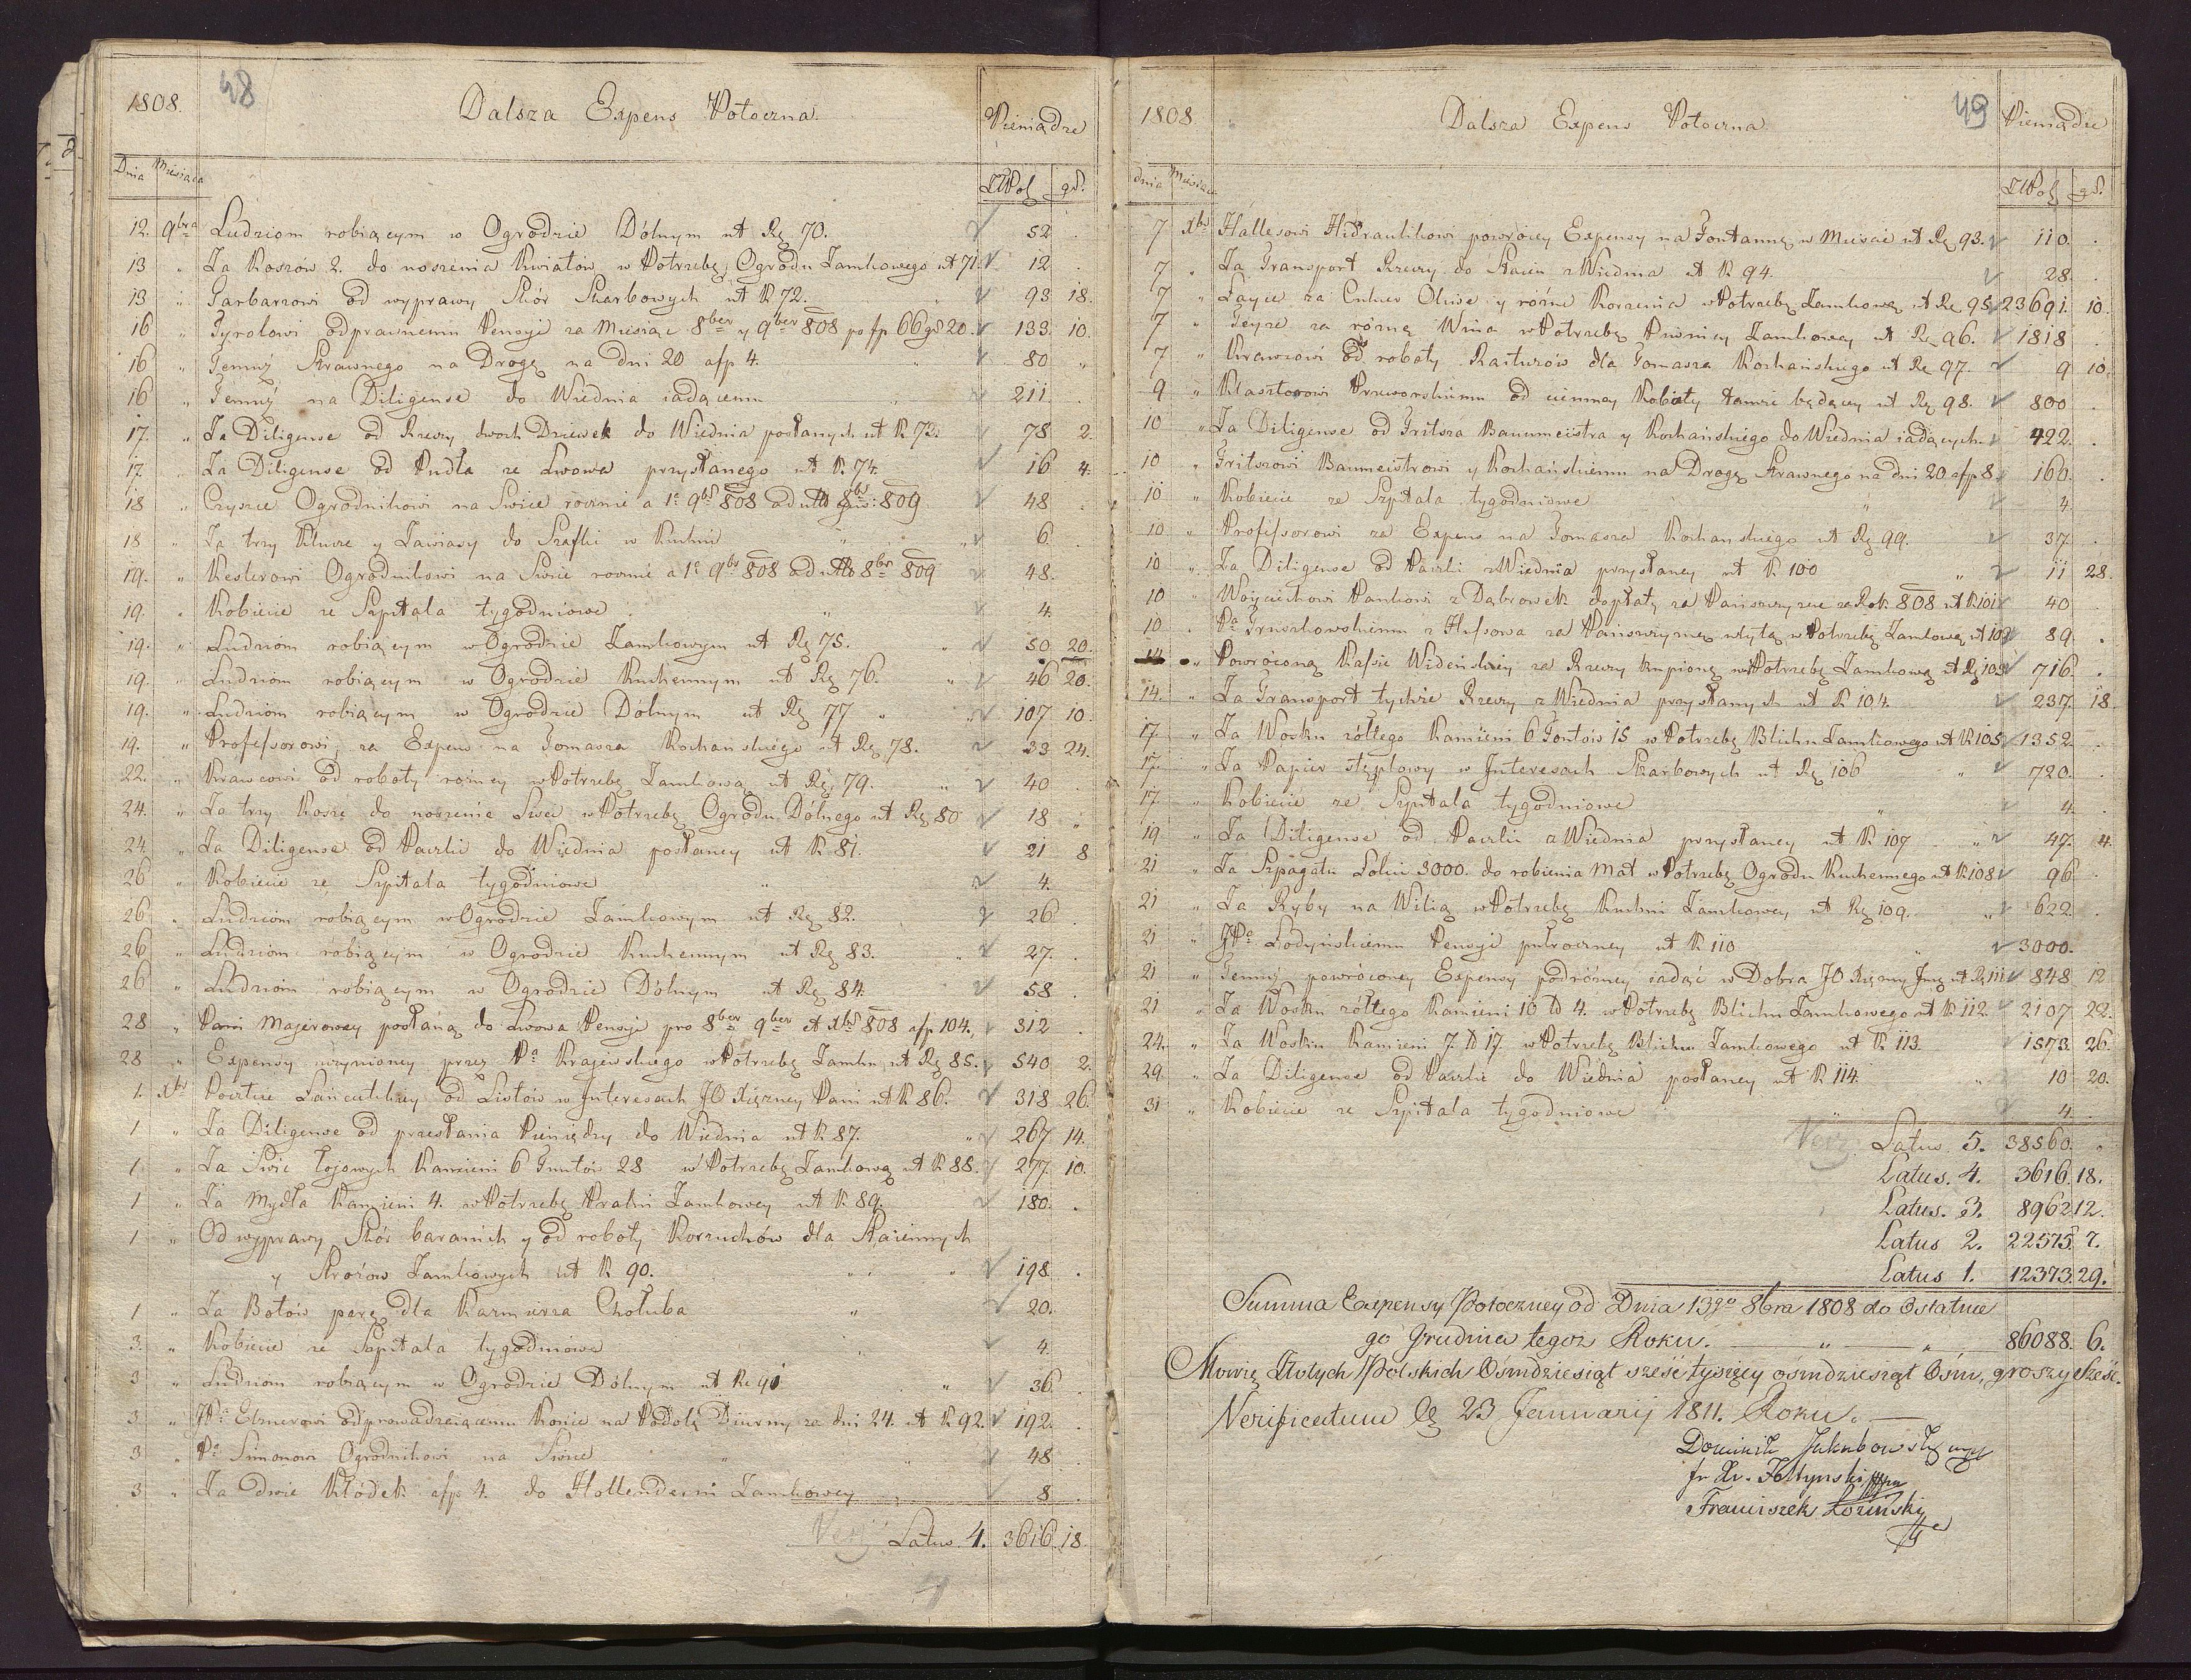 48
1808. Dalsza Expens Potoczna Pieniądze
Dnia Miesiąca ZłPol gr.
12. 9bra Ludziom robiącym w Ogrodzie Dólnym ut Rg 70. 52
13 " Za Koszów 2. do noszenia Kwiatów w Potrzebę Ogrodu Zamkowego ut 71. 12
13 " Garbarzowi od wyprawy Skór Skarbowych ut R 72. 93 18.
16 " Tyrolowi odprawnemu Pensyi za Miesiąc 8ber y 9ber 808 po fp 66 gr 20. 133. 10.
16 " Jemuż Strawnego na Drogę na dni 20 afp 4. 80 "
16 " Jemuż na Diligense do Wiednia iadącemu 211. .
17. " Za Diligense od Rzeczy dwoch Dziewek do Wiednia posłanych ut R 73. 78 2.
17. " Za Diligense od Pudła ze Lwowa przysłanego ut R. 74. 16 4.
18 " Czyszce Ogrodnikowi na Swice rocznie a 1a 9br 808 ad 8bs 809 48
18 " Za trzy Klucze y Zawiasy do Szafki w Kuchni 6. .
19. " Keslerowi Ogrodnikowi na Swice rocznie a 1a 9br 808 ad 8br 809 48.
19. " Kobiecie ze Szpitala tygodniowe 4.
19. " Ludziom robiącym w Ogrodzie Zamkowym ut Rg 75. 50 20.
19. " Ludziom robiącym w Ogrodzie Kuchennym ut Rg 76. 46 20.
19. " Ludziom robiącym w Ogrodzie Dólnym ut Rg 77 107 10.
19. " Professorowi za Expens na Tomasza Kochanskiego ut Rg 78. 33 24.
22. " Krawcowi od roboty rożney w Potrzebę Zamkową ut Rg 79. 40
24. " Za trzy Kosze do noszenia Swiec w Potrzebę Ogrodu Dólnego ut Rg 80 18 "
24 " Za Diligense od Paczki do Wiednia posłaney ut R 81. 21 8
26 " Kobiecie ze Szpitala tygodniowe 4.
26 " Ludziom robiącym w Ogrodzie Zamkowym ut Rg 82. 26 .
26 " Ludziom robiącym w Ogrodzie Kuchennym ut Rg 83. 27. .
26 " Ludziom robiącym w Ogrodzie Dólnym ut Rg 84. 58 .
28 " Pani Majerowey posłaną do Lwowa Pensyi pro 8ber 9ber et Xbr 808 afp 104. 312 .
28 " Expensy uczynioney przez Pa Krajewskiego w Potrzebę Zamku ut Rg 85. 540 2.
1. Xbr Poczcie Łańcutskiey od Listów w Interesach JO Xiężney Pani ut R 86. 318 26.
1 " Za Diligense od przesłania Pieniędzy do Wiednia ut R 87. 267 14.
1 " Za Swic łojowych Kamieni 6 Funtów 28 w Potrzebę Zamkową ut R 88. 277 10.
1 " Za Mydła Kamieni 4. w Potrzebę Pralni Zamkowey ut R 89. 180. .
1 " Od wyprawy Skór baranich y od roboty Korzuchów dla Staiennych
y Strożów Zamkowych ut R 90. 198 .
1 " Za Botów parę dla Kazmierza Chołuba 20.
3. " Kobiecie ze Szpitala tygodniowe 4.
3 " Ludziom robiącym w Ogrodzie Dólnym ut Rg 91 36.
3 " JPa Elznerowi odprowadzaiącemu Konie na Podole Diurny za dni 24. ut R 92. 192.
3 " Pa Simonowi Ogrodnikowi na Swice 48 .
3 " Za dwie Kłódek afp 4. do Hollenderni Zamkowey 8 .
Latus. 4. 3616 18.
49
1808 Dalsza Expens Potoczna Pieniądze
dnia Miesiąca ZłPol gr.
7 Xbr Hallesowi Hidraulikowi powróczy Expensy na Fontannę w Miescie ut Rg 93. 110. .
7 " Za Transport Rzeczy do Staien z Wiednia ut R 94. 28. .
7 " Łayce za Cukier Oliwe y różne Korzenia w Potrzebę Zamkową ut Rg 95 23691. 10.
7 " Teyze za różne Wina w Potrzebę Piwnicy Zamkowey ut Rg 96. 1818 .
7 " Krawcowi od roboty Rasturów dla Tomasza Kochańskiego ut Rg 97. 9 10.
9 " Klasztorowi Przeworskiemu od ciemney Kobiety tamze będącey ut Rg 98. 800 .
10 " Za Diligense od Fritsza Baumeistra y Kochańskiego do Wiednia iadących 422. .
10 " Fritszowi Baumeistrowi y Kochańskiemu na Drogę Strawnego na dni 20 afp 8. 160. .
10 " Kobiecie ze Szpitala tygodniowe 4
10 " Professorowi za Expens na Tomasza Kochanskiego ut Rg 99. 37 .
10 " Za Diligense od Paczki z Wiednia przysłaney ut R 100 11 28.
10 " Woyciechowi Pankowi z Dąbrowek dopłatę za Pańszczyznę za Rok 808 ut R 101 40
10 . Pa Gruszkowskiemu z Hussowa za Pańszczyznę użytą w Potrzebę Zamkową ut 102 89. .
14. " Powróconą Kassie Wideńskiey za Rzeczy kupione w Potrzebę Zamkową ut Rg 103 716. .
14. " Za Transport tychże Rzeczy z Wiednia przysłanych ut R 104. 237 18
17 " Za Wosku żółtego Kamieni 6 Fontów 15 w Potrzebę Blichu Zamkowego ut R 105 1352. .
17. " Za Papier stęplowy w Interesach Skarbowych ut Rg 106 720. .
17 " Kobiecie ze Szpitala tygodniowe 4. .
19 " Za Diligense od Paczki z Wiednia przysłaney ut R 107 47. 4.
21 " Za Szpagatu Łokci 3000. do robienia Mat w Potrzebę Ogrodu Kuchennego ut R 108 96 .
21 " Za Ryby na Wilią w Potrzebę Kuchni Zamkowey ut Rg 109. 622. .
21 " JPa Łodyńskiemu Pensyi półroczney ut R 110 3000. .
21 " Jemuż powróconey Expensy podróżney iadąc w Dobra JO ut Rg 111 848 12
21 " Za Wosku żółtego Kamieni 10 tb 4. w Potrzebę Blichu Zamkowego ut R 112. 2107 22.
24. " Za Wosku Kamieni 7 tb 17 w Potrzebę Blichu Zamkowego ut R 113. 1573. 26.
29. " Za Diligense od Paczki do Wiednia posłaney ut R 114. 10 20.
31 " Kobiecie ze Szpitala tygodniowe 4. .
Latus 5. 38560. "
Latus. 4. 3616. 18.
Latus. 3. 8962 12.
Latus 2. 22575. 7.
Latus 1. 12373. 29.
Summa Expensy Potoczney od Dnia 13go 8bra 1808 do Ostatnie
go Grudnia tegoz Roku. 86088. 6.
Mowię Złotych Polskich Osmdziesiąt sześć tysięcy ośmdziesiąt Ośm, groszy sześć.
Verificatum 23 Januarij 1811. Roku.
Dominik Jakubowski mp
Franciszek Łoziński